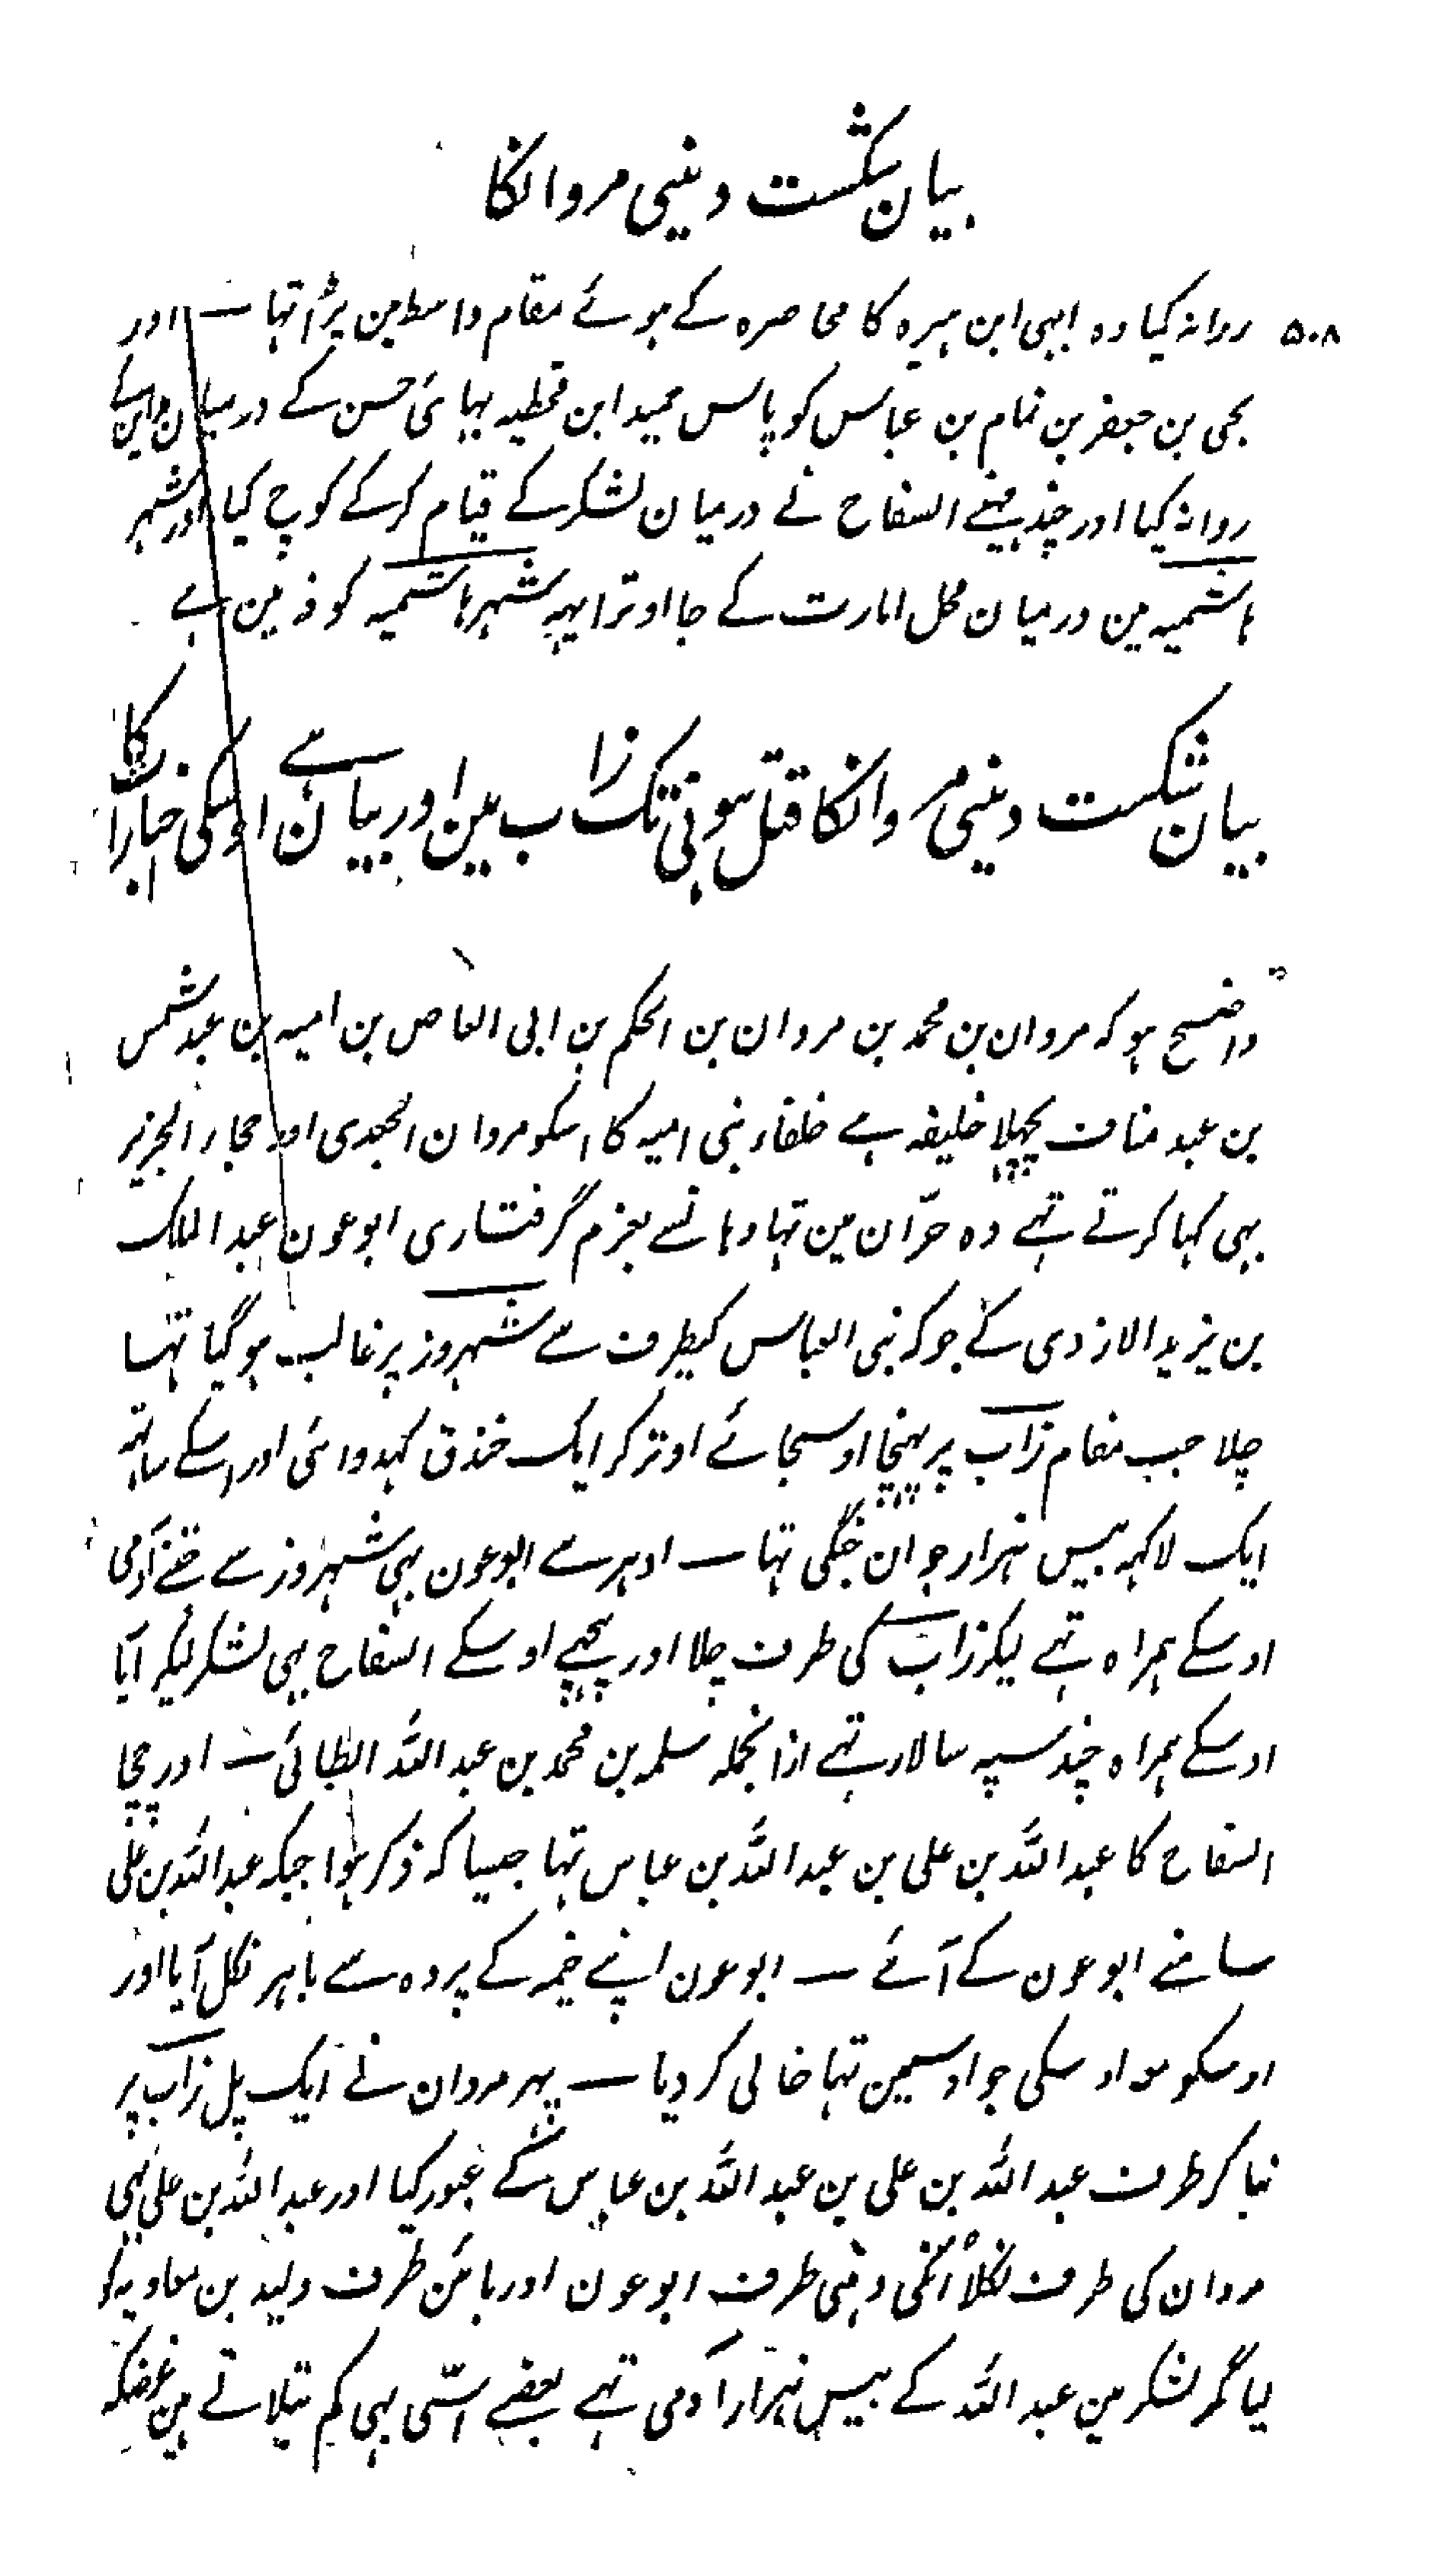 بیان شکست دینی مروانکا
۵۰۸
روانہ کیا وہ ابہی ابن ہبیرہ کا محاصرہ کے ہوئے مقام واسط مین پڑا تہا ـــ اور
یحی بن جعفر بن تمام بن عباس کو پاس حمید ابن قحطبہ بہائی حسن کے درمیان مداین کے
روانہ کیا اور چند مہینے السفاح نے درمیان لشکر کے قیام کر کے کوچ کیا اور شہر
ہاشمیہ مین درمیان محل امارت کے جا اوترا یہہ شہر ہاشمیہ کوفہ مین ہے
بیان شکست دینی مروانکا قتل ہونی تک زاب مین اور بیان ہے اوسکی اخبارات کا
واضح ہو کہ مروان بن محمد بن مروان بن الحکم بن ابی العاص بن امیہ بن عبد شمس
بن عبد مناف پچہلا خلیفہ ہے خلفاء بنی امیہ کا اسکو مروان الجعدی اور حمار الجزیر
بہی کہا کرتے تہے وہ حرّان مین تہا وہانسے بعزم گرفتاری ابو عون عبد الملک
بن یزید الازدی کے جو کہ بنی العباس کیطرف سے شہروز پر غالب ہو گیا تہا
چلا جب مقام زاب پر پہنچا اوسجائے اوتر کر ایک خندق کہدوائی اور اسکے ساتہہ
ایک لاکہہ بیس ہزار جوان جنگی تہا ـــ ادہر سے ابو عون بہی شہروز سے جتنے آدمی
اوسکے ہمراہ تہے لیکر زاب کی طرف چلا اور پیچہے اوسکے السفاح بہی لشکر لیکر آیا
اوسکے ہمراہ چند سپہ سالار تہے ازانجملہ سلمہ بن محمد بن عبد اللہ الطائی ـــ اور چچا
السفاح کا عبد اللہ بن علی بن عبد اللہ بن عباس تہا جیسا کہ ذکر ہوا جبکہ عبد اللہ بن علی
سامنے ابو عون کے آئے ـــ ابو عون اپنے خیمہ کے پردہ سے باہر نکل آیا اور
اوسکو سواد سکی جو اوسمین تہا خالی کر دیا ـــ پہر مروان نے ایک پل زاب پر
بنا کر طرف عبد اللہ بن علی بن عبد اللہ بن عباس کے عبور کیا اور عبد اللہ بن علی بہی
مروان کی طرف نکلا انکی دہنی طرف ابو عون اور بائین طرف ولید بن معاویہ کو
لیا گر لشکر مین عبد اللہ کے بیس ہزار آدمی تہے بعضے اسّی بہی کم بتلاتے ہین غرضکہ